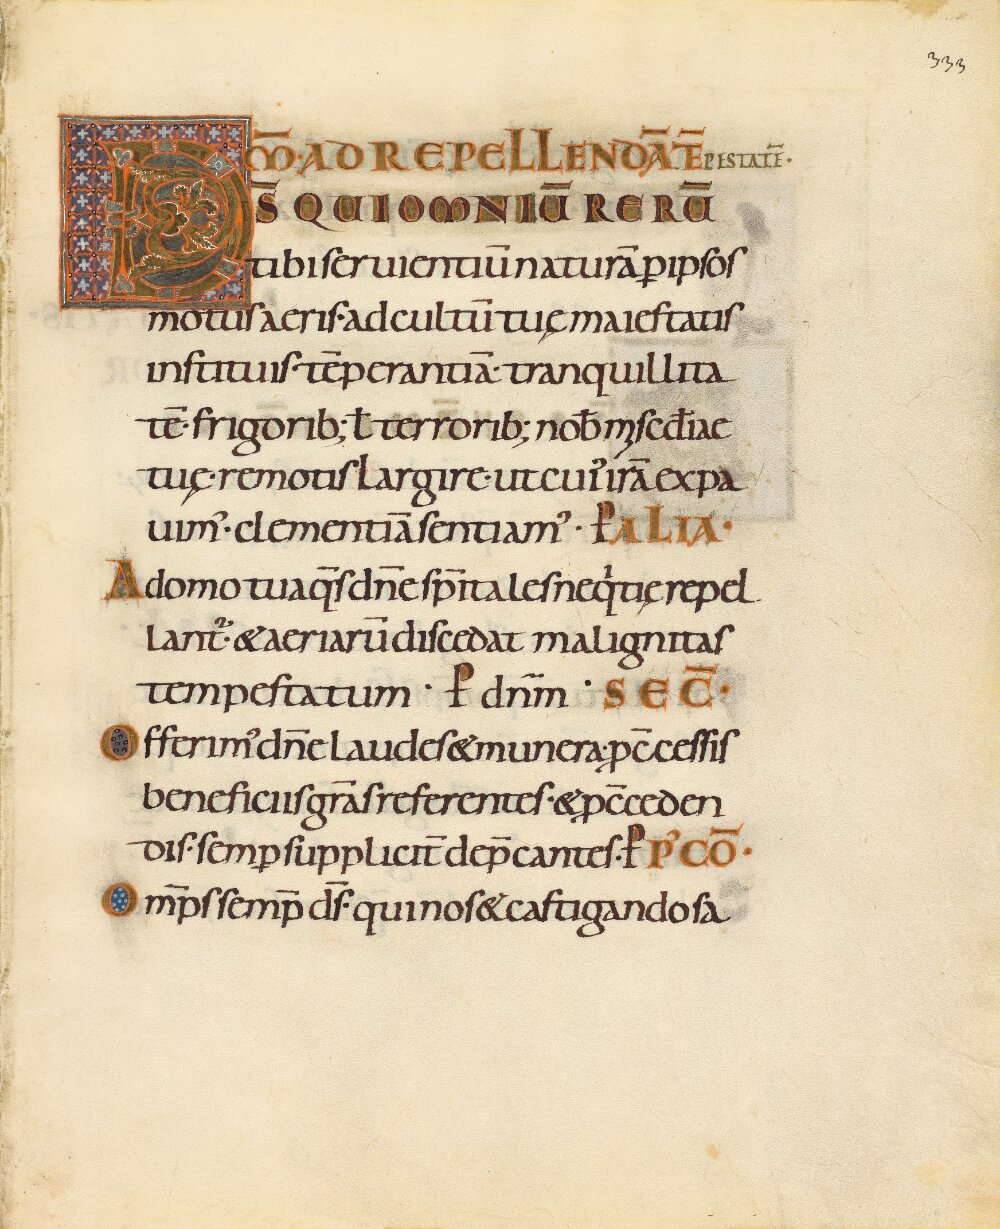 333
M̄·AD REPELLENDĀ TĒPESTATĒ·
DS̄ QUI OMNIŪ RERŪ
tibi seruientiū naturā ꝑ ipsos
motus aeris· ad cultū tuę maiestatis
instituis· tēperantiā· tranquillita
tē· frigorib; ł terrorib; nob̄ mꝭscd̄iae
tuę· remotis largire· ut cuiꝰ irā expa
uimꝰ· clementiā sentiamꝰ· P̱ ALIA·
A domo tua q̄s dn̄e sp̄itales neqͥtię repel
lant᷑· & aeriarū discedat malignitas
tempestatum · P̱ dn̄m · SEC̄·
Offerimꝰ dn̄e laudes & munera· ꝓ c̄cessis
beneficiis gr̄as referentes· & ꝓ c̄ceden
dis· semꝑ supplicit̄ dep̄cantes· P̱ PꝰCŌ·
Om̄ps semp̄ ds̄· qui nos & castigando sa